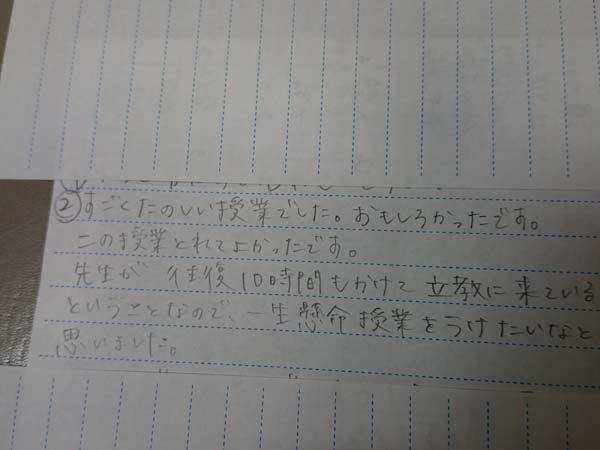 ②すごくたのしい授業でした。おもしろかったです。
この授業とれてよかったです。
先生が往復10時間もかけて立教に来ている
ということなので、一生懸命授業をうけたいなと
思いました。